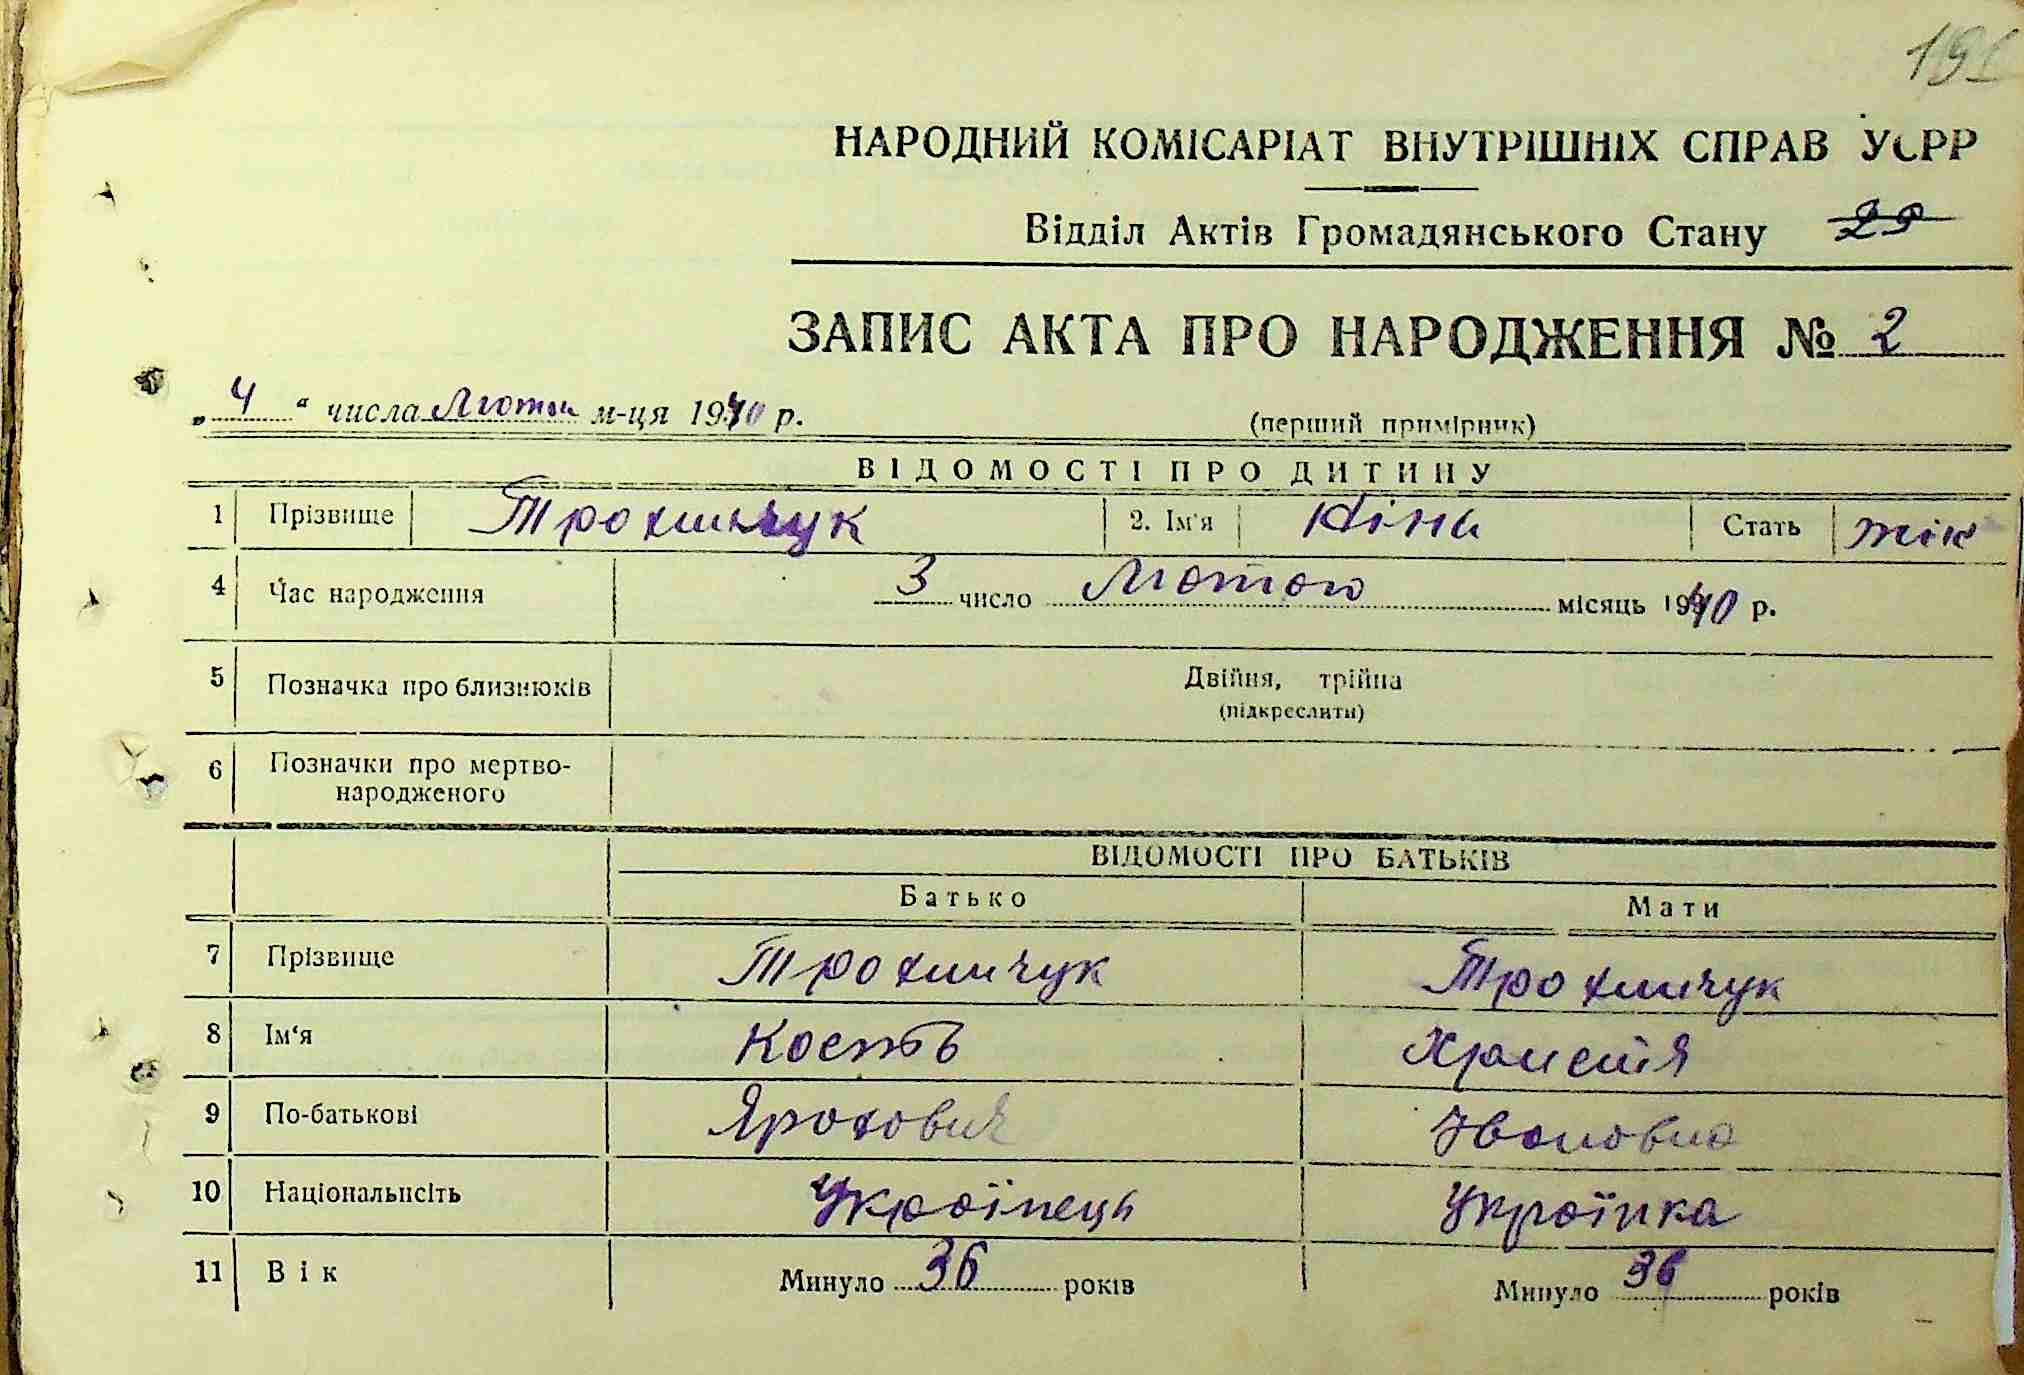 НАРОДНИЙ КОМІСАРІАТ ВНУТРІШНІХ СПРАВ УСРР
Відділ Актів Громадянського Стану 29
ЗАПИС АКТА ПРО НАРОДЖЕННЯ № 2
„4“ числа Лютого м-ця 1940 р.
(перший примірник)
ВІДОМОСТІ ПРО ДИТИНУ
1 Прізвище Трохимчук 2. Ім'я Ніна Стать жін
4 Час народження 3 число Лютого місяць 1940 р.
5 Позначка про близнюків Двійня, трійна
(підкреслити)
6 Позначки про мертво-
народженого
ВІДОМОСТІ ПРО БАТЬКІВ
Батько Мати
7 Прізвище Трохимчук Трохимчук
8 Ім'я Кость Христя
9 По-батькові Ярохович Івановна
10 Національність Українець Українка
11 Вік Минуло 36 років Минуло 36 років